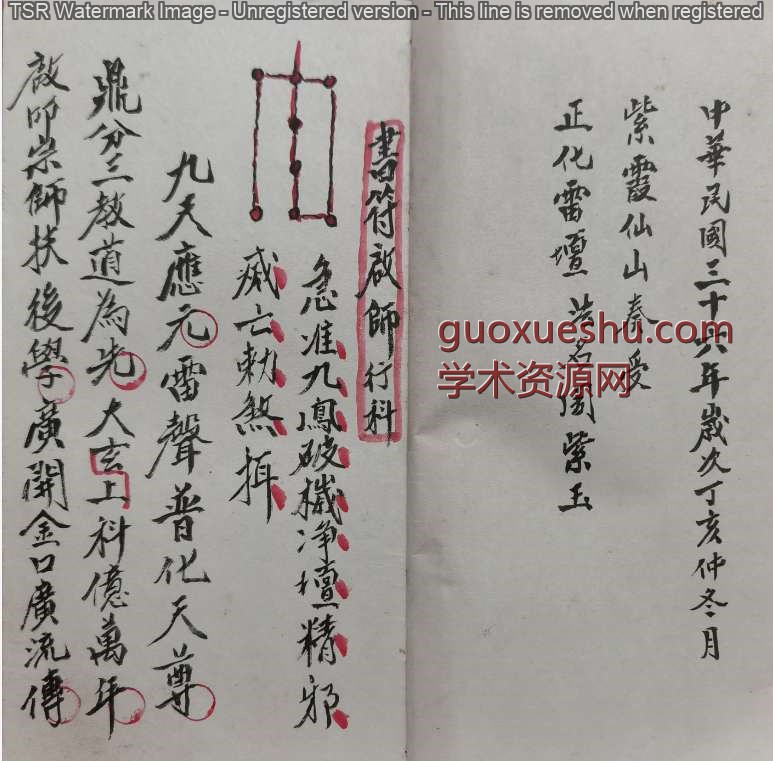 TSR Watermark Image - Unregistered version - This line is removed when registered
中華民國三十六年歲次丁亥仲冬月
紫霞仙山奏受
正化雷壇 法名 紫玉
guoxueshu.com
学术资源网
書符啟師行科
急准九鳳破穢净壇精邪
亡勅煞
九天應元雷聲普化天尊
鼎分三教道為先大玄上科億萬年
啟叩宗師扶後學廣開金口廣流傳